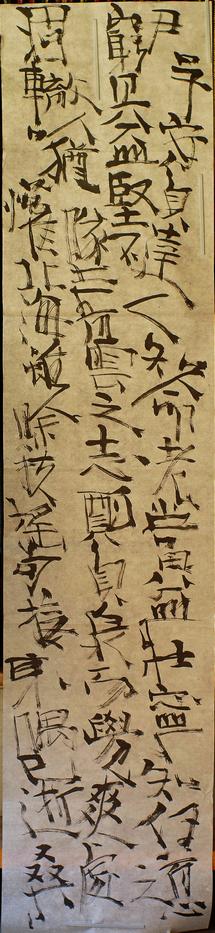 君子安貧達人知命老當益壯寧知白首之心
窮且益堅不墜青雲之志酌貪泉而覺爽處
涸轍以猶懽北海雖賒扶搖可接東隅已逝桑